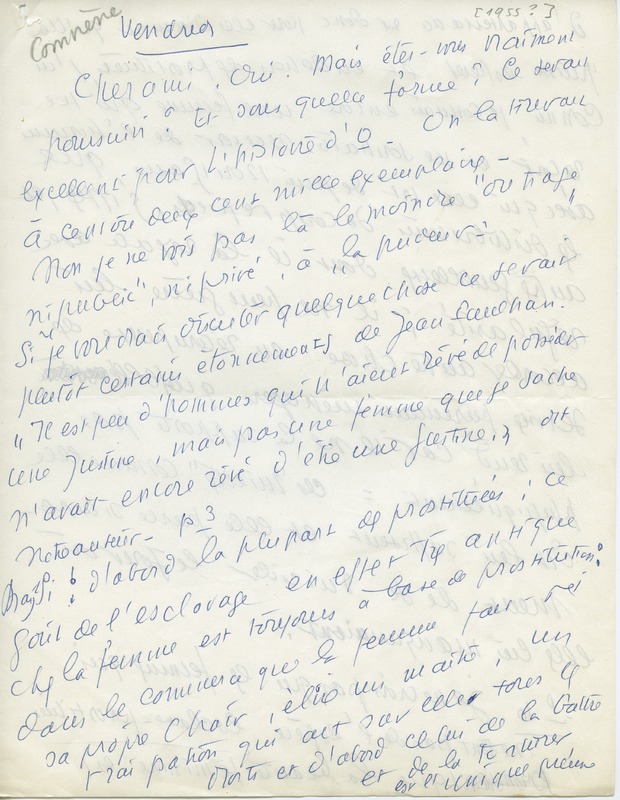 [1955?]
Comnène
Vendredi
Cher ami, oui. Mais êtes-vous vraiment
poursuivi? Et sous quelle forme? Ce serait
excellent pour L'histoire d'O. On la tirerait
à cent ou deux cent mille exemplaires –
Non je ne vois pas là le moindre "outrage
ni public", ni privé, à "la pudeur".
Si je voudrais discuter quelque chose ce serait
plutôt certains étonnements de Jean Paulhan.
"Il est peu d'hommes qui n'aient rêvé de posséder
une Justine, mais pas une femme que je sache
n'avait encore rêvé d'être une Justine", dit
notre auteur – p 3
Mais si! d'abord la plupart de prostituées; ce
goût de l'esclavage en effet très antique
chez la femme est toujours à base de prostitution:
dans le commerce que la femme fait de
sa propre chair, élit un maître, un
vrai patron qui ait sur elle tous les
droits et d'abord celui de la battre
et de la torturer
est l'unique